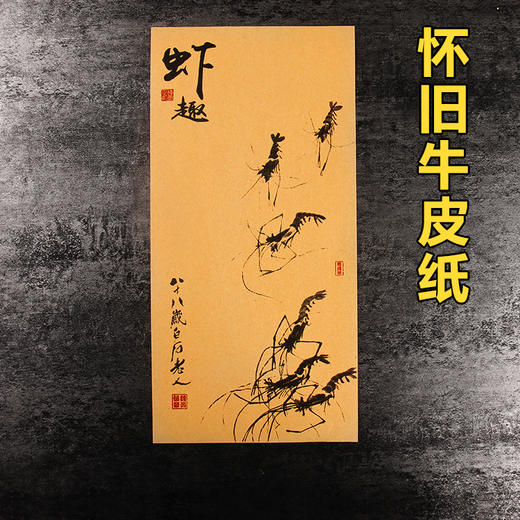 虾
趣
八十八歲白石老人
怀旧牛皮纸